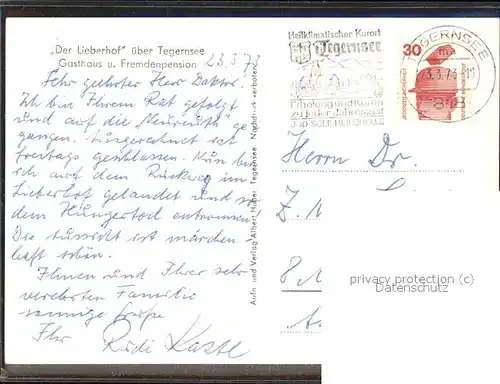 „Der Lieberhof" über Tegernsee
Gasthaus u. Fremdenpension
23.3.73
Sehr geehrter Herr Doktor.
Ich bin Ihrem Rat gefolgt
und auf die „Neureuth" ge
gangen. Ausgerechnet ist
Freitags geschlossen. Nun bin
ich auf dem Rückweg im
Lieberhof gelandet und so
dem Hungertod entronnen.
Die Aussicht ist märchen-
haft schön.
Ihnen und Ihrer sehr
verehrten Familie
sonnige Grüße
Ihr Rudi
Aufn. und Verlag Albert Huber Tegernsee Nachdruck verboten
Heilklimatischer Kurort
Tegernsee
Erholung und Kuren
zu jeder Jahreszeit
JOD-SOLE HEILQUELLE
TEGERNSEE
23.3.73
30
Herrn Dr.
privacy protection (c)
Datenschutz